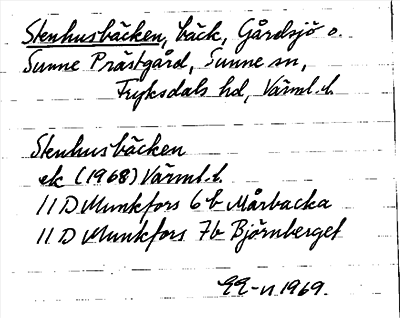 Stenhusbäcken, bäck, Gårdsjö o.
Sunne Prästgård, Sunne sn,
Fryksdals hd, Värml. l.
Stenhusbäcken
ek (1968) Värml. l.
11 D Munkfors 6b Mårbacka
11 D Munkfors 7b Björnberget
1969.